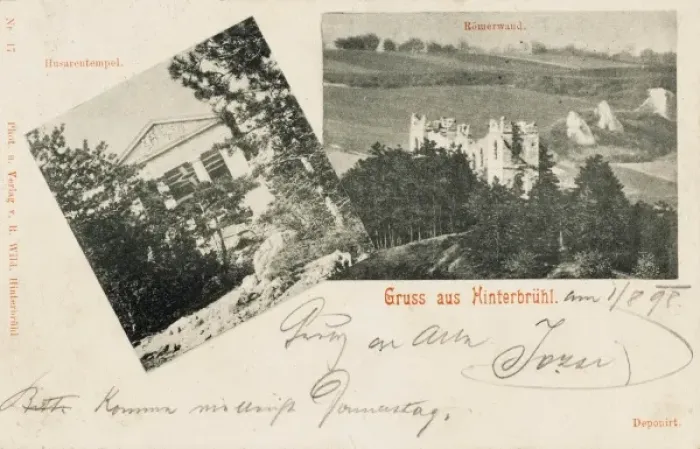 Nr. 17
Husarentempel.
Römerwand.
Phot. u. Verlag v. R. Wild, Hinterbrühl
Gruss aus Hinterbrühl.
am 1/8 98.
an alle
Komme vielleicht Donnerstag.
Deponirt.